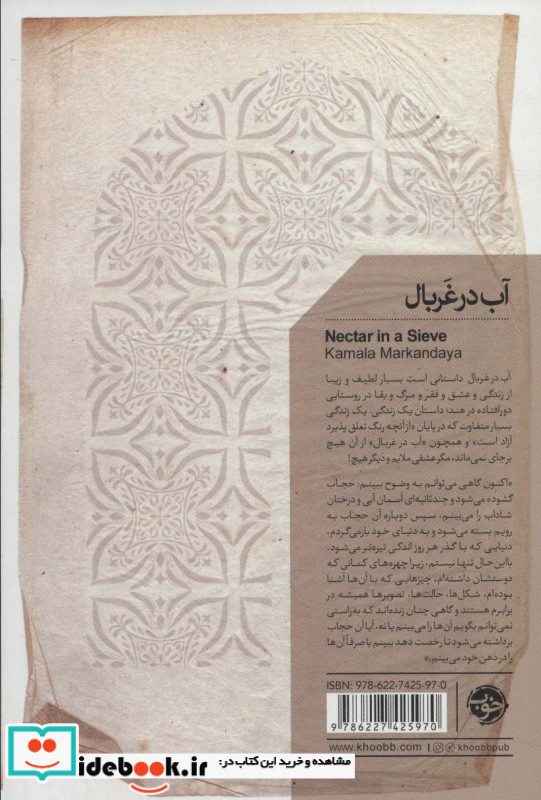 آب در غَربال
Nectar in a Sieve
Kamala Markandaya
آب در غربال داستانی است بسیار لطیف و زیبا
از زندگی و عشق و فقر و مرگ و بقا در روستایی
دورافتاده در هند؛ داستان یک زندگی. یک زندگی
بسیار متفاوت که در پایان «از آنچه رنگ تعلق پذیرد
آزاد است» و همچون «آب در غربال» از آن هیچ
برجای نمی‌ماند، مگر عشقی ملایم و دیگر هیچ!
«اکنون گاهی می‌توانم به وضوح ببینم: حجاب
گشوده می‌شود و چند ثانیه‌ای آسمان آبی و درختان
شاداب را می‌بینم، سپس دوباره آن حجاب به
رویم بسته می‌شود و به دنیای خود بازمی‌گردم،
دنیایی که با گذر هر روز اندکی تیره‌تر می‌شود.
بااین‌حال تنها نیستم، زیرا چهره‌های کسانی که
دوستشان داشته‌ام، چیزهایی که با آن‌ها آشنا
بوده‌ام، شکل‌ها، حالت‌ها، تصویرها همیشه در
برابرم هستند و گاهی چنان زنده‌اند که به‌راستی
نمی‌توانم بگویم آن‌ها را می‌بینم یا نه، آیا آن حجاب
برداشته می‌شود تا رخصت دهد ببینم یا صرفاً آن‌ها
را در ذهن خود می‌بینم.»
ISBN: 978-622-7425-97-0
9 786227 425970
خوب
www.khoobb.com | khoobbpub
idebook.ir
مشاهده و خرید این کتاب در: